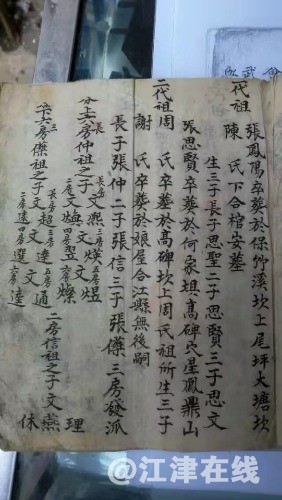 一代祖
張鳳鳴卒葬於保竹溪坎上尾坪大塘坎
陳 氏下合棺安墓
生三子長子思聖二子思賢三子思文
張思賢卒葬於何家垻高碑穴星鳳鼎山
二代祖周 氏卒葬於高碑坎上周氏祖所生三子
謝 氏卒葬於娘屋合江縣無後嗣
長子張仲二子張信三子張傑三房發派
長
分上六房仲祖之子
長房文熙三房文燁五房文煜
二房文煥四房文翌六房文燦
二房信祖之子文
理
燕
休
三
分下六房傑祖之子
長房文超三房文達五房文通
二房文達四房文選六房文遠
@江津在线